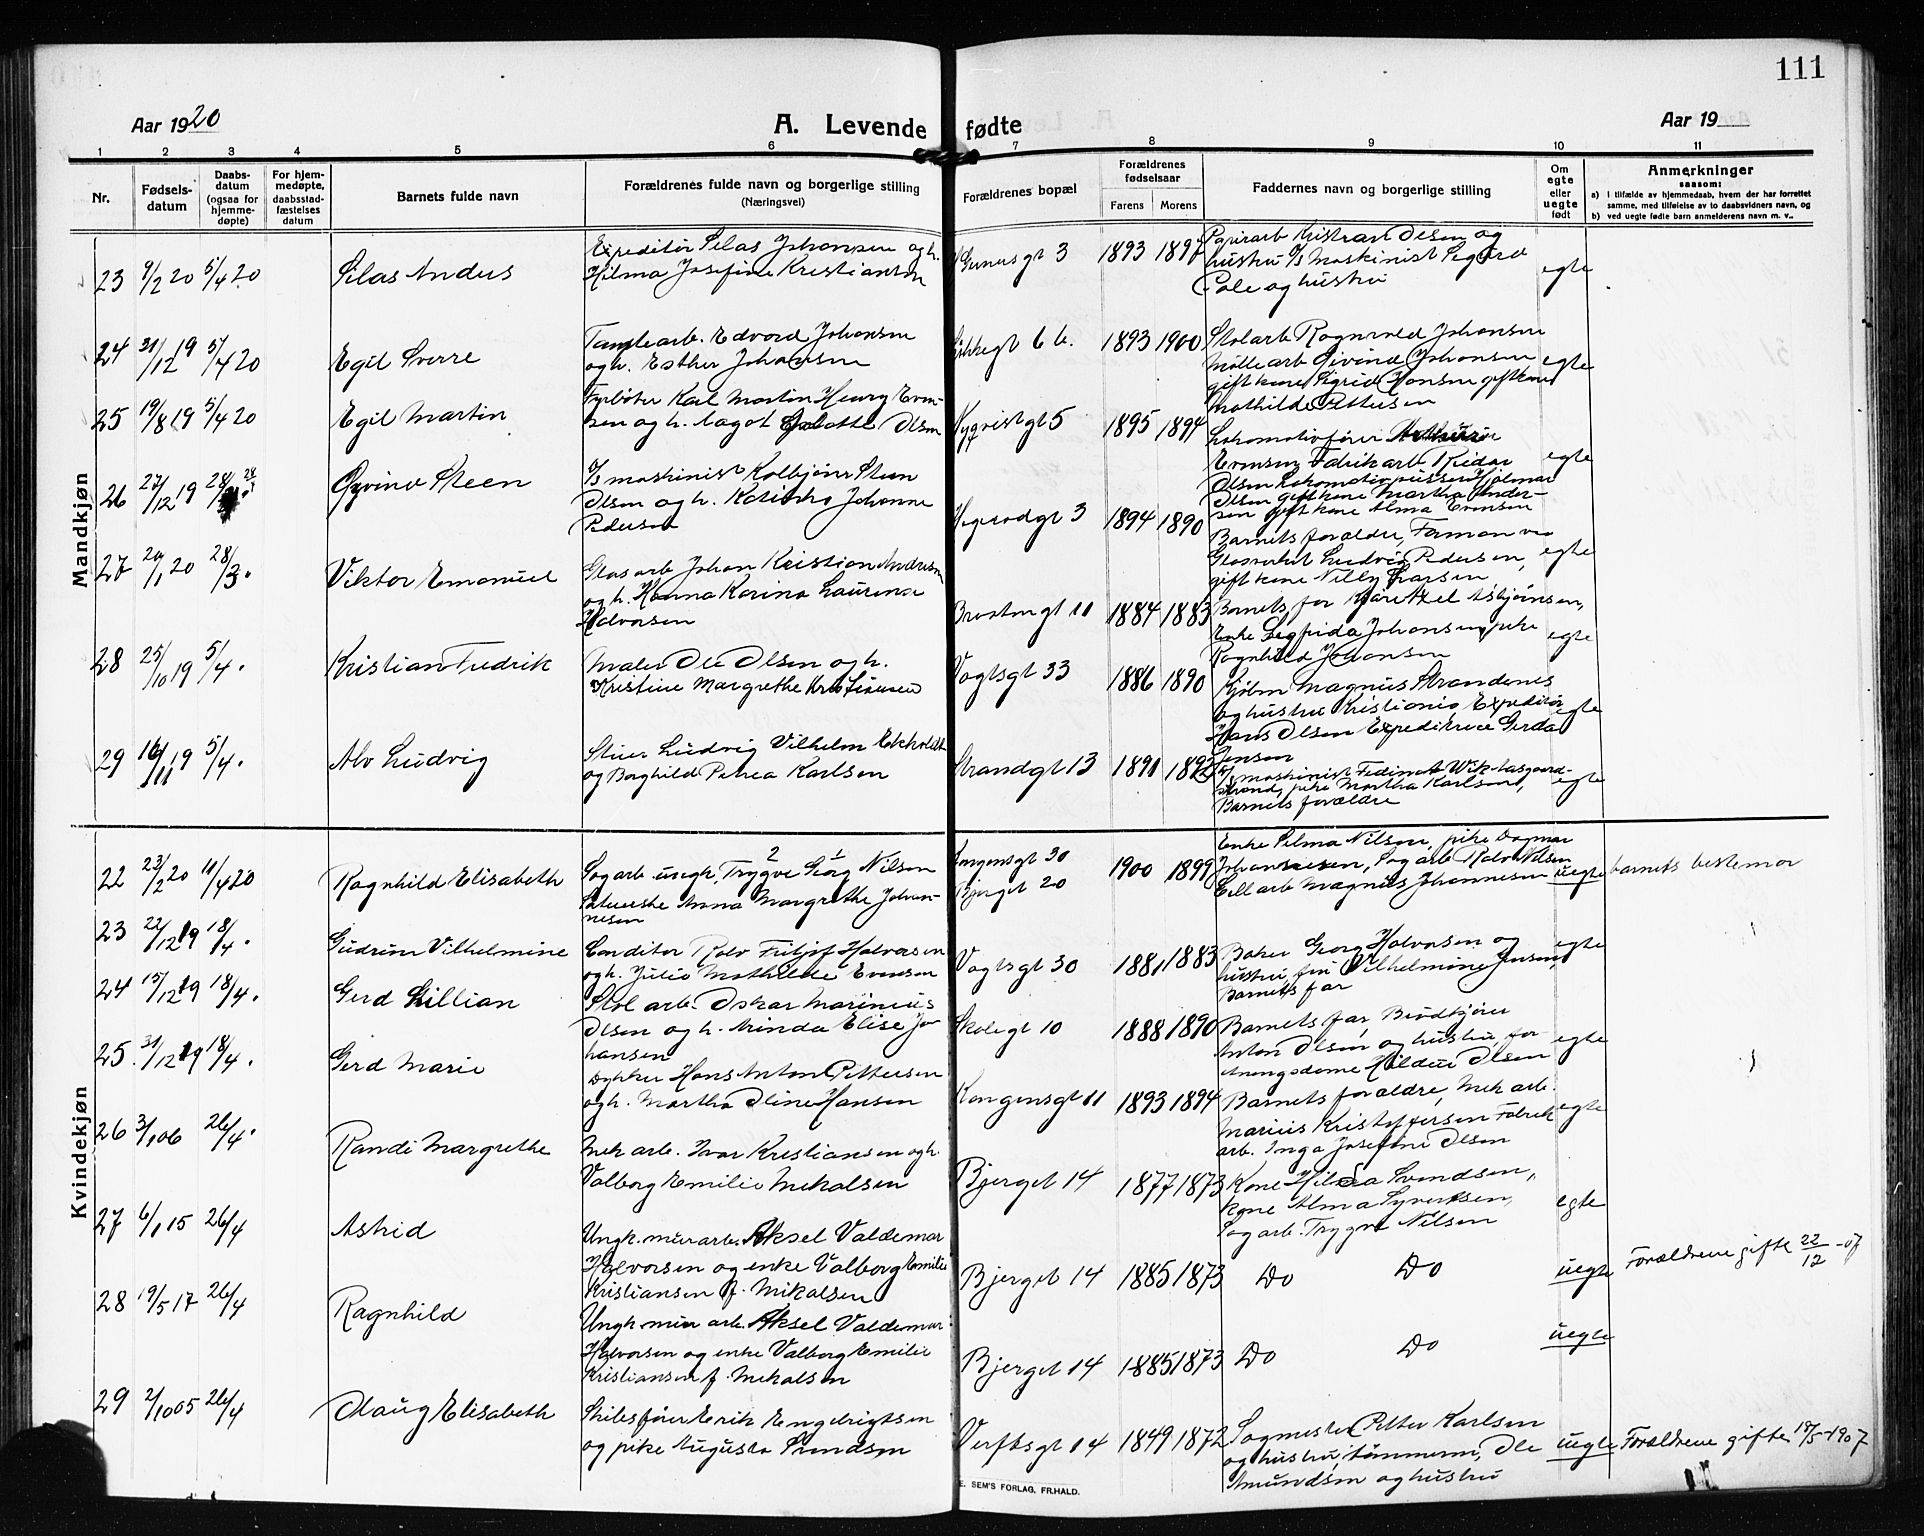 111
Aar 1920
A. Levende fødte
Aar 19
1 2 3 4 5 6 7 8 9 10 11
Nr.
Fødsels-
datum
Daabs-
datum
(ogsaa for
hjemme-
døpte)
For hjem-
medøpte,
daabsstad-
fæstelses
datum
Barnets fulde navn
Forældrenes fulde navn og borgerlige stilling
(Næringsvei)
Forældrenes bopæl
Forældrenes
fødselsaar
Farens Morens
Faddernes navn og borgerlige stilling
Om
egte
eller
uegte
født
Anmerkninger
saasom:
a) i tilfælde av hjemmedaab, hvem der har forrettet
samme, med tilføielse av to daabsvidners navn, og
b) ved uegte fødte barn anmelderens navn m. v..
Mandkjøn
23 9/2 20 5/4 20 Silas Anders
Expeditør Silas Johansen og h.
Hilma Josefine Kristiansen
gt 3 1893
Papirarb Kristian Olsen og
hustru Maskinist Sigurd
og hustru
egte
24 31/12 19 5/4 20 Egil Sverre
arb. Edvard Johansen
og h. Esther Johansen
6 b. 1893 1900
Stolarb Ragnvald Johansen
Møllearb Øivind Johansen
gift kone Sigrid Hansen gift kone
Mathilde Pettersen
egte
25 19/8 19 5/4 20 Egil Martin
Fyrbøter Karl Martin Henry Evensen
og h. Aagot Olsen
gt 5 1895 1894
Lokomotivfører
Evensen Fabrikarb Reidar
Olsen Lokomotivpusser Hjalmar
Olsen gift kone Martha Andersen
gift kone Alma Evensen
egte
26 27/12 19 28/ Øyvind Steen
maskinist Kolbjørn Steen
Olsen og h. Johanne
Pedersen
gt 3 1894 1890
Barnets forældre, Formann ved
Glasverket Ludvig Pedersen,
gift kone Nelly Larsen
egte
27 /1 20 28/3. Viktor Emanuel
Glasarb Johan Kristian Andersen
og h. Hanna Karina Laurense
Halvorsen
gt 11 1884 1883
Barnets far Asbjørnsen,
Enke Johansen, pike
Ragnhild Johansen
egte
28 25/10 19 5/4. Kristian Fredrik
Maler Ole Olsen og h.
Kristine Margrethe Kristiansen
Vogtsgt 33 1886 1890
Magnus Strandenes
og hustru Expeditør
Hans Olsen Expeditrice Gerda
Jensen
egte
29 16/11 19 5/4. Alv Ludvig
Ludvig Vilhelm
og Borghild Petrea Karlsen
Strandgt 13
maskinist Wik Aasgaard-
strand, pike Martha Karlsen,
Barnets forældre
egte
Kvindekjøn
22 23/2 20 11/4 20 Ragnhild Elisabeth
Sagarb ungk. Trygve Georg Nilsen
Anna Margrethe Johannesen
Kongensgt 30
Bjerget 20
1900 1899
Enke Selma Nilsen, pike Dagmar
Johannesen, Sagarb Rolv Nilsen
arb Magnus Johannesen
uegte barnets bestemor
23 22/12 19 18/4. Gudrun Vilhelmine
Conditor Rolv Fritjof Halvorsen
og h. Julie Mathilde Evensen
Vogtsgt 30 1881 1883
Baker Georg Halvorsen og
hustru, frk Vilhelmine Jensen,
Barnets far
egte
24 15/12 19 18/4. Gerd Lillian
Stol arb. Oskar Marinius
Olsen og h. Minda Elise Jo-
hansen
Skolegt 10 1888 1890
Barnets far, Brødkjører
Anton Olsen og hustru, for-
retningsdame Hildur Olsen
egte
25. 31/12 19 18/4. Gerd Marie
Dykker Hans Anton Pettersen
og h. Martha Oline Hansen
Kongensgt 11 1893 1894
Barnets forældre, Mek arb.
Marius Kristoffersen Fabrik
arb. Inga Josefine Olsen
egte
26 3/1 06 26/4. Randi Margrethe
Mek arb. Ivar Kristiansen og h.
Valborg Emilie Mekalsen
Bjerget 14 1877 1873
Kone Hilda Svendsen,
kone Alma Syvertsen,
Sagarb. Trygve Nilsen
egte
27 6/1 15 26/4 Astrid
Ungk. murarb. Aksel Valdemar
Halvorsen og enke Valborg Emilie
Kristiansen f. Mikalsen
Bjerget 14 1885 1873 Do Do
uegte Forældrene gifte 22/12 -07
28 19/5 17 26/4 Ragnhild
Ungk. mur arb. Aksel Valdemar
Halvorsen og enke Valborg Emilie
Kristiansen f. Mekalsen
Bjerget 14 1885 1873 Do Do
uegte
29 2/10 05 26/4 Olaug Elisabeth
Skibsfører Erik Engebrigtsen
og pike Augusta
Verftsgt 14 1849 1872
Sagmester Petter Karlsen
og hustru, tømmerm. Ole
Amundsen og hustru
uegte Forældrene gifte 18/5-1907
E. SEM'S FORLAG, FR.HALD.